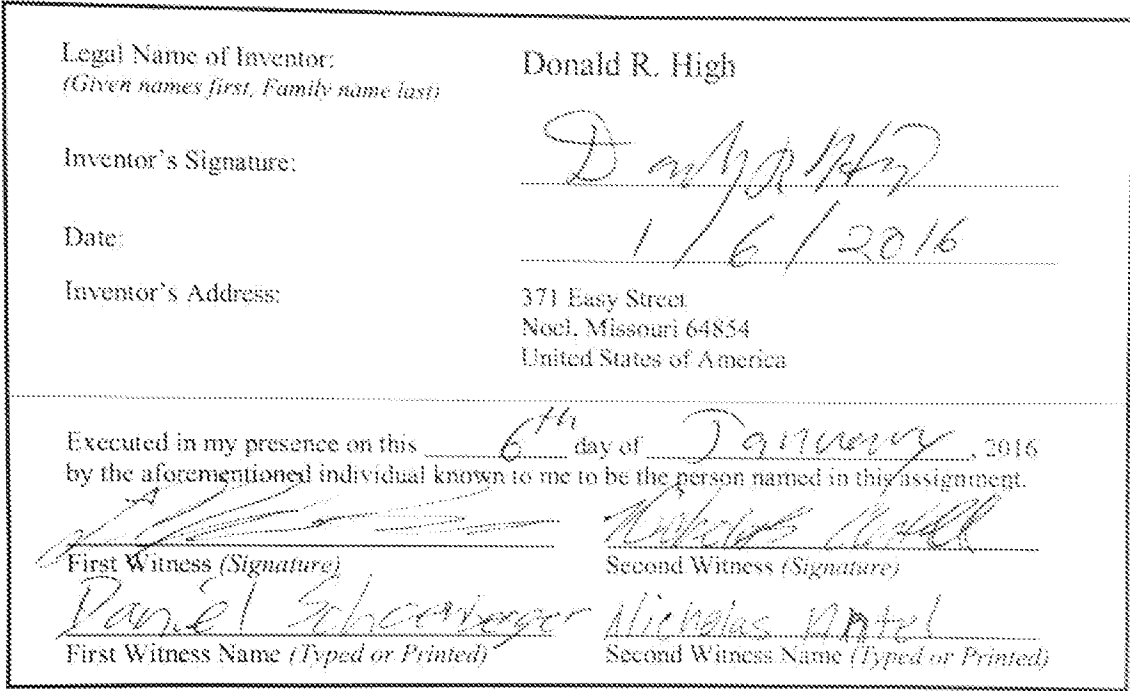 Legal Name of Inventor: Donald R. High
(Given names first, Family name last)
Inventor's Signature:
Date: 1/6/2016
Inventor's Address: 371 Easy Street
Noel, Missouri 64854
United States of America
Executed in my presence on this 6th day of January, 2016
by the aforementioned individual known to me to be the person named in this assignment.
First Witness (Signature) Second Witness (Signature)
Daniel Nicholas
First Witness Name (Typed or Printed) Second Witness Name (Typed or Printed)